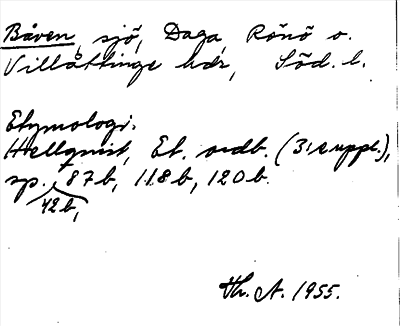 Båven, sjö, Daga, Rönö o.
Villåttinge hdr, Söd. l.
Etymologi.
Hellquist, Et. ordb. (3:e uppl.),
sp. 42b, 87b, 118b, 120b.
Th. A. 1955.